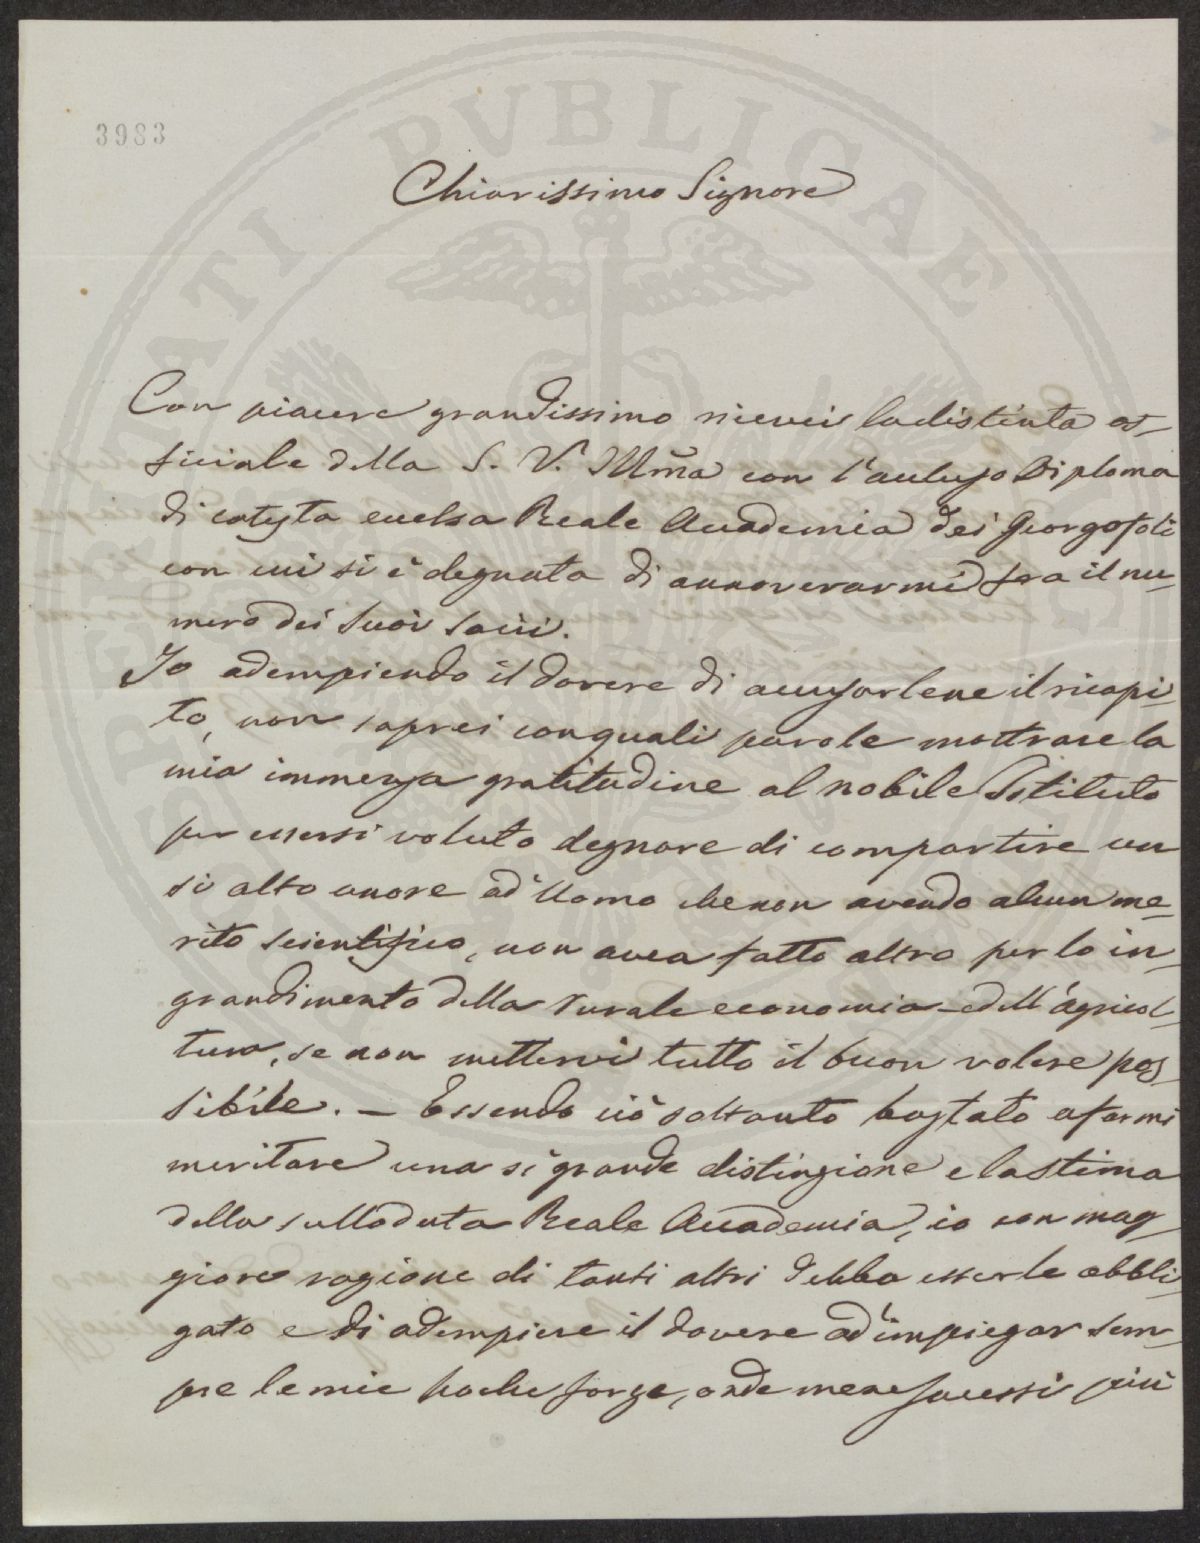 3983
Chiarissimo Signore
Con piacere grandissimo ricevei la distinta of-
ficiale della S. V. Illma con l'aulico Diploma
di cotesta eccelsa Reale Accademia dei Georgofoli
con cui si è degnata di annoverarmi fra il nu-
mero dei suoi socii.
Io adempiendo il dovere di accusarlene il ricapi-
to, non saprei con quali parole mostrare la
mia immensa gratitudine al nobile Istituto
per essersi voluto degnare di compartire un
sì alto onore ad Uomo che non avendo alcun me-
rito scientifico, non avea fatto altro per lo in-
grandimento della rurale economia e dell'agricol-
tura, se non mettervi tutto il buon volere pos-
sibile. — Essendo ciò soltanto bastato a farmi
meritare una sì grande distinzione e la stima
della sullodata Reale Accademia, io con mag-
giore ragione di tanti altri debbo esserle obbli-
gato e di adempiere il dovere ad impiegar sem-
pre le mie poche forze, onde mene facessi più
SEPTEMPRIVATI PVBLICAE